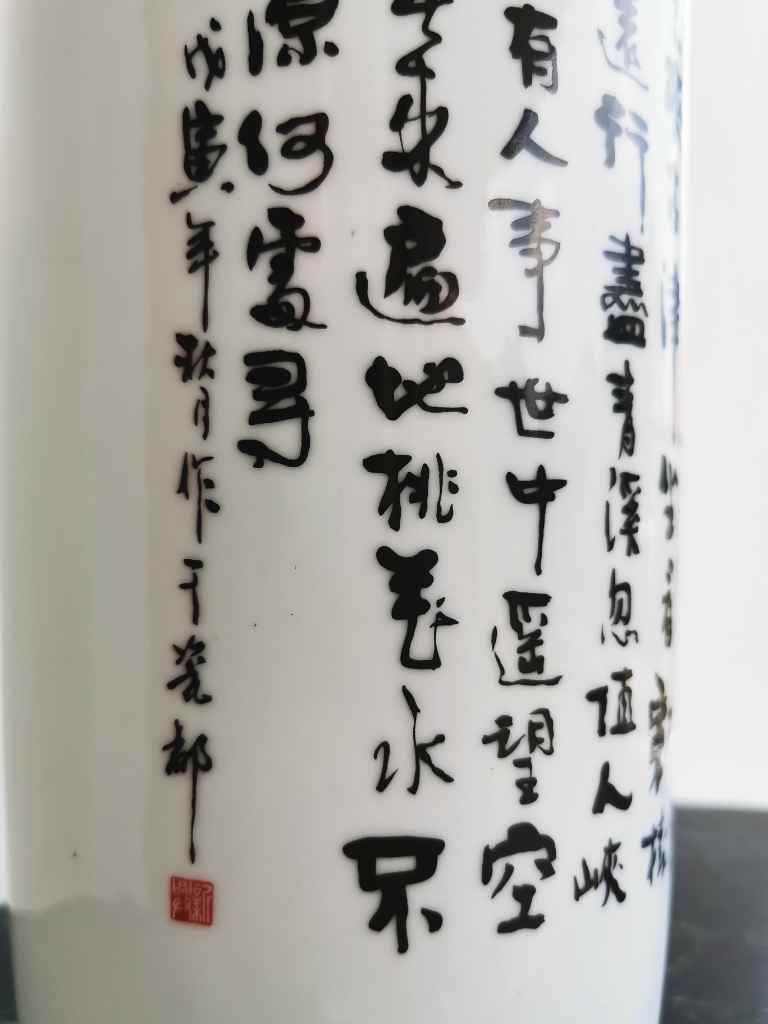 遠行盡青溪忽值人峽
有人事世中遙望空
來遍地桃花水不
源何處尋
戊寅年秋月作于瓷都